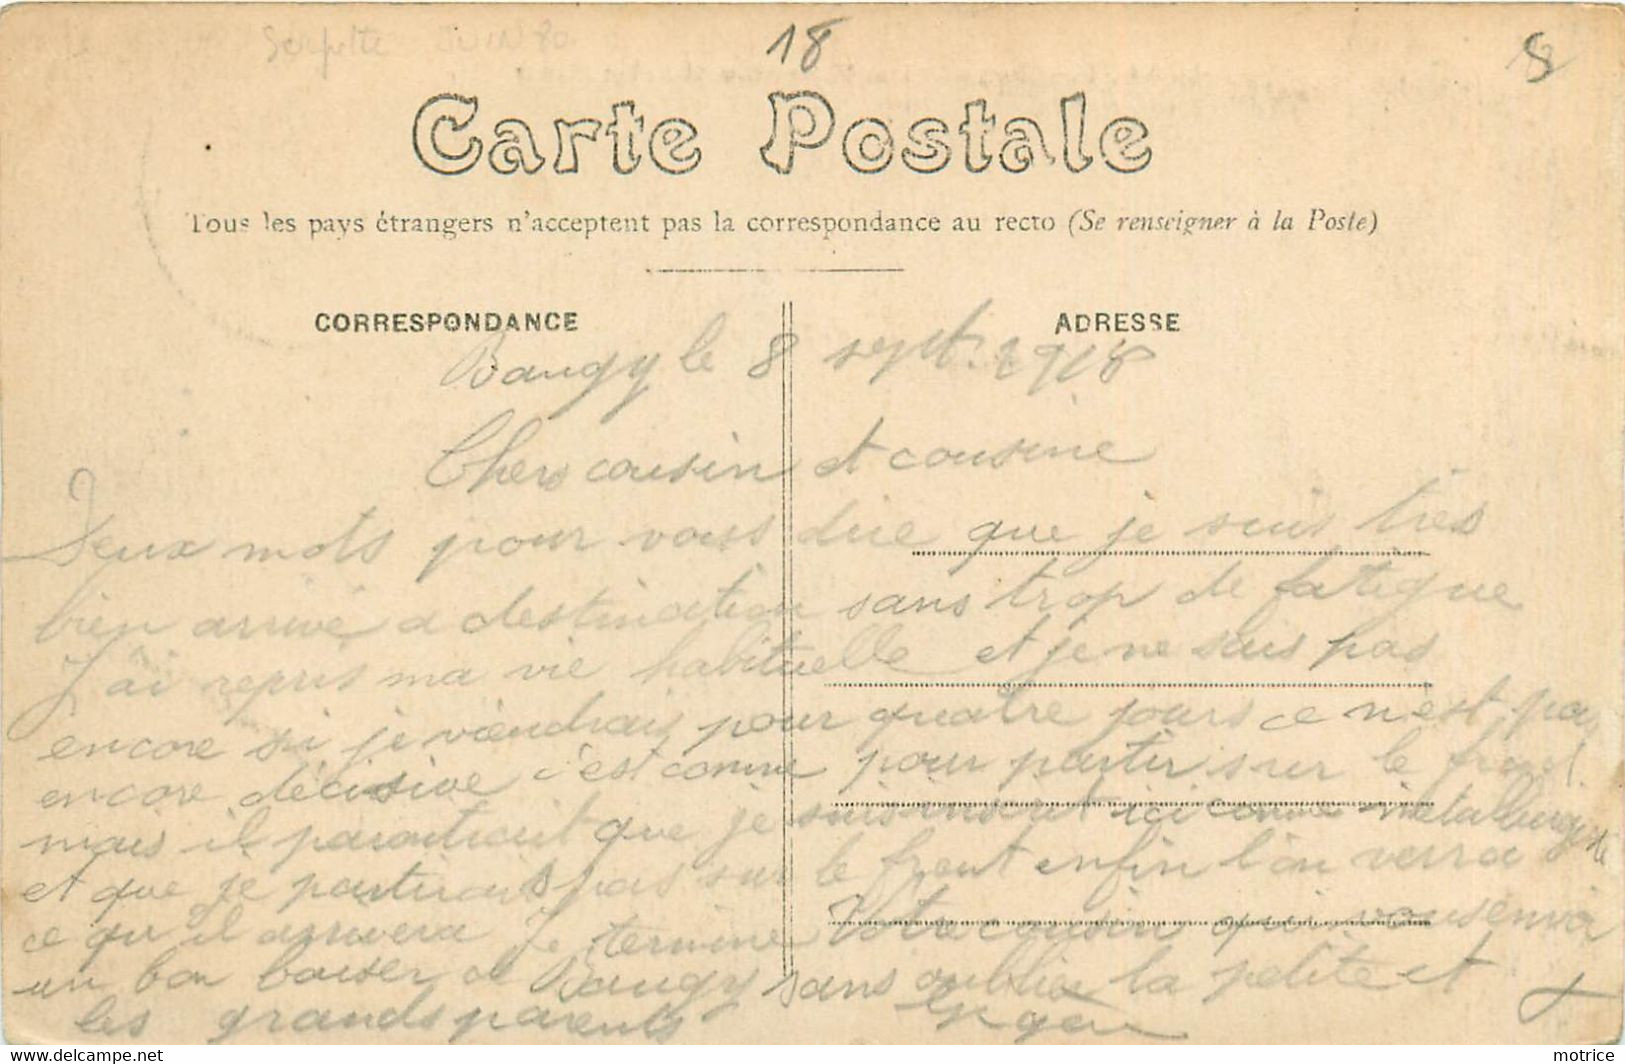 18
8
Carte Postale
Tous les pays étrangers n'acceptent pas la correspondance au recto (Se renseigner à la Poste)
CORRESPONDANCE
ADRESSE
Baugy le 8 sept. 1918
Chers cousin et cousine
Deux mots pour vous dire que je suis très
bien arrivé a destination sans trop de fatigue
J'ai repris ma vie habituelle et je ne sais pas
encore si je viendrais pour quatre jours ce n'est pas
encore décisive c'est comme pour partir sur le front
mais il paraitrait que je suis inscrit ici comme métallurgiste
et que je partirais pas sur le front enfin l'on verra
ce qu'il arrivera Je termine Votre cousin qui vous envoi
un bon baiser de Baugy sans oublier la petite et
les grands parents
motrice